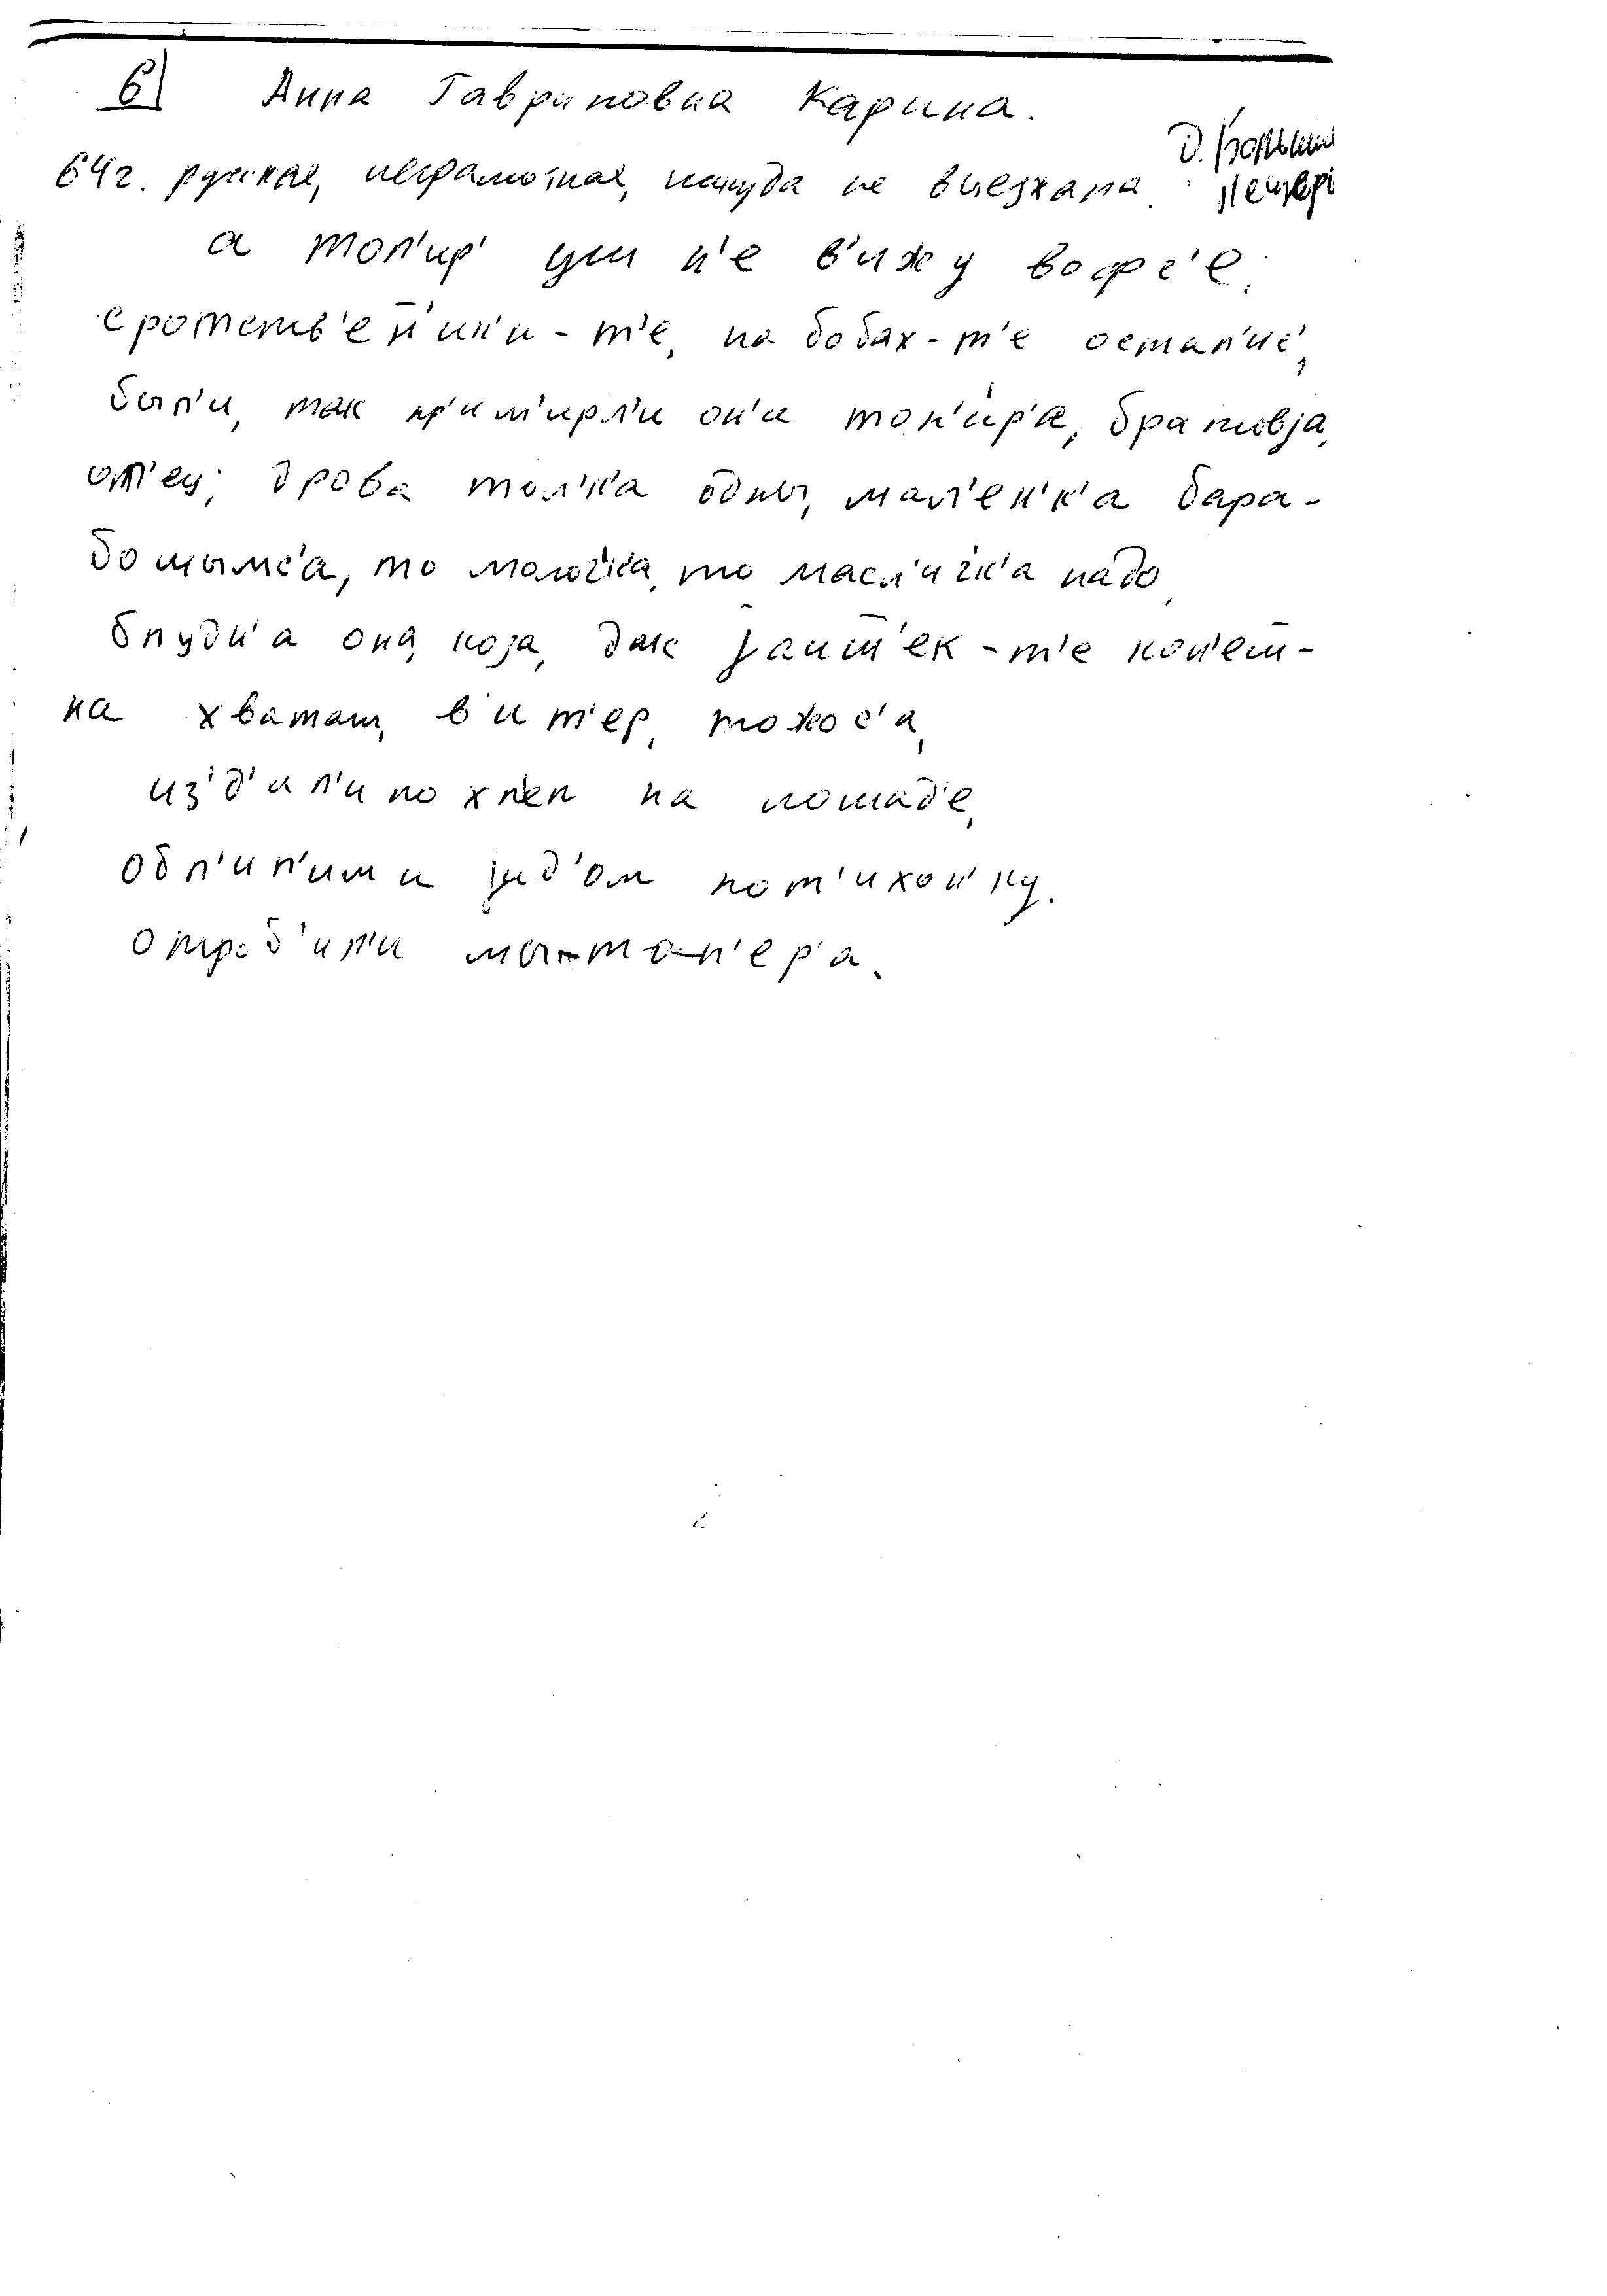 6 Анна Гавриловна Карина.
д. Большие
64г. русская, неграмотная, никуда не выезжала
а топ'ир' уш н'е в'ижу вофс'е.
сротств'ен̄'ик'и-т'е, на бобах-т'е остал'ис',
был'и, так пр'им'ирл'и он'и топ'ир'а, братовjа,
от'ец, дрова тол'к'а одны, мал'ен'к'а бара-
бошымс'а, то молоч'к'а, то масл'ич'к'а надо,
блудн'а она, коза, дак jаит̄'ек-т'е кон'еш-
на хватат, в'ит'ер, тожос'а,
из'д'ил'и по хлеп на лошад'е,
обл'ип'им и jид'ом пот'ихон'ку.
отроб'ил'и мы-топ'ер'а.